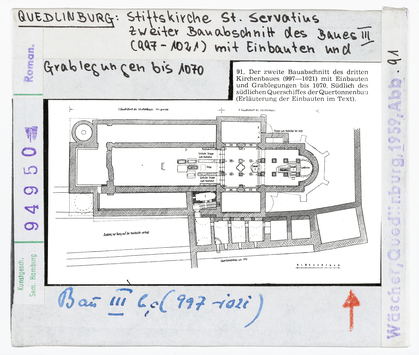 QUEDLINBURG: Stiftskirche St. Servatius
zweiter Bauabschnitt des Baues III
(997-1021) mit Einbauten und
Grablegungen bis 1070
91. Der zweite Bauabschnitt des dritten
Kirchenbaues (997—1021) mit Einbauten
und Grablegungen bis 1070. Südlich des
südlichen Querschiffes der Quertonnenbau
(Erläuterung der Einbauten im Text).
Roman.
94950
Kunstgesch.
Sem. Hamburg
Wäscher, Quedlinburg, 1959, Abb. 91
Bau III b,c (997-1021)